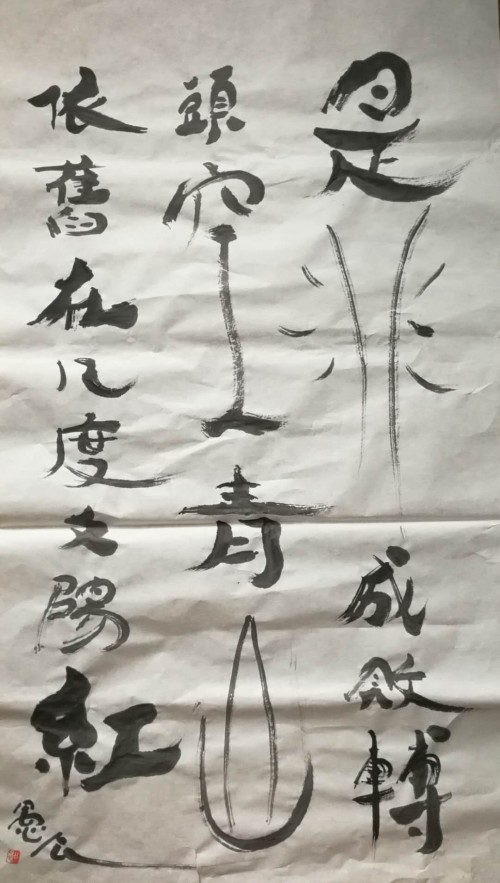 是非成敗轉
頭空青山
依舊在几度夕陽紅
愚公